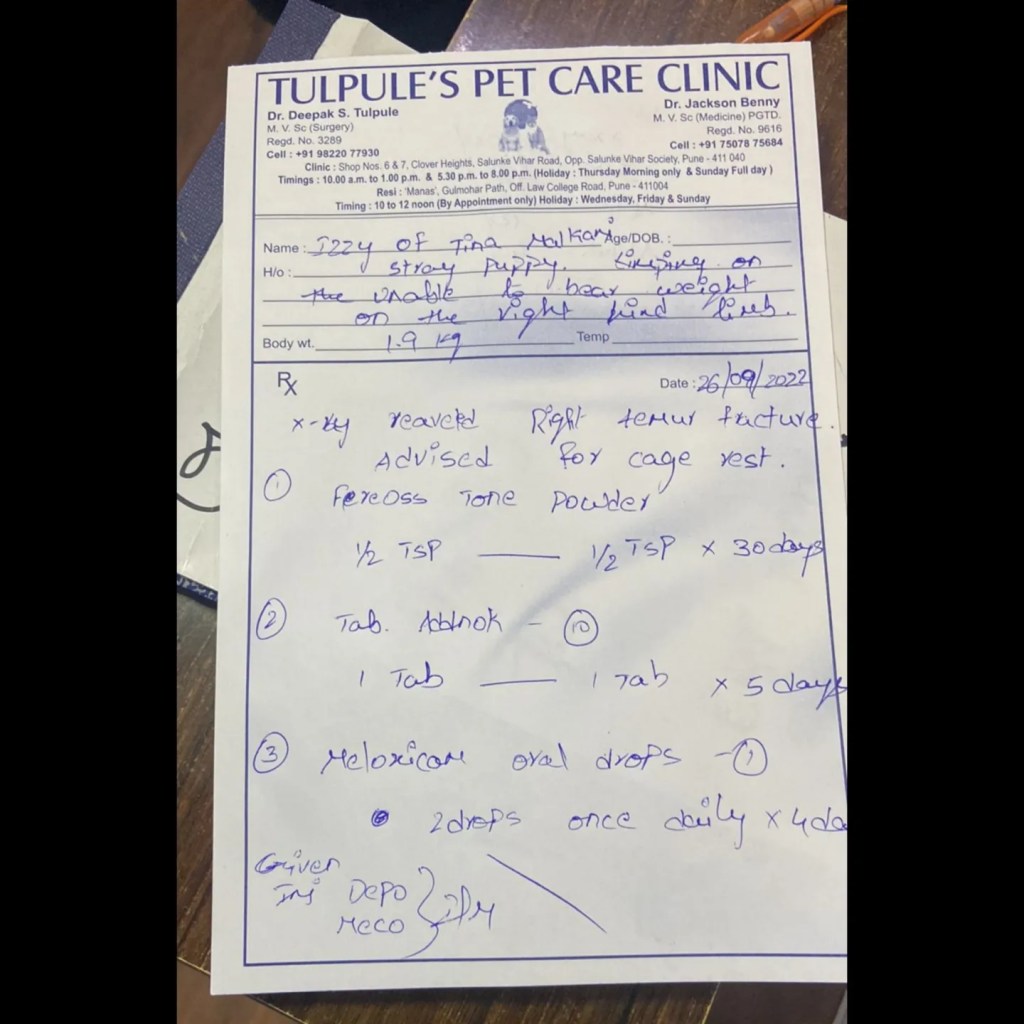 TULPULE'S PET CARE CLINIC
Dr. Deepak S. Tulpule
M. V. Sc (Surgery)
Regd. No. 3289
Cell : +91 98220 77930
Dr. Jackson Benny
M. V. Sc (Medicine) PGTD.
Regd. No. 9616
Cell : +91 75078 75684
Clinic : Shop Nos. 6 & 7, Clover Heights, Salunke Vihar Road, Opp. Salunke Vihar Society, Pune - 411 040
Timings : 10.00 a.m. to 1.00 p.m. & 5.30 p.m. to 8.00 p.m. (Holiday : Thursday Morning only & Sunday Full day )
Resi : 'Manas', Gulmohar Path, Off. Law College Road, Pune - 411004
Timing : 10 to 12 noon (By Appointment only) Holiday : Wednesday, Friday & Sunday
Name : Izzy of Tina Malkani Age/DOB. :
H/o : stray puppy. Limping on
the unable to bear weight
on the right hind limb.
Body wt. 1.9 kg Temp
Rx Date : 26/09/2022
x-ray Right femur fracture.
Advised for cage rest.
① Tone powder
1/2 TSP — 1/2 TSP x 30 days
② Tab. - ⑩
1 Tab — 1 Tab x 5 days
③ Meloxicam oral drops - ①
2 drops once daily x 4 da
Given
Inj Depo
Meco